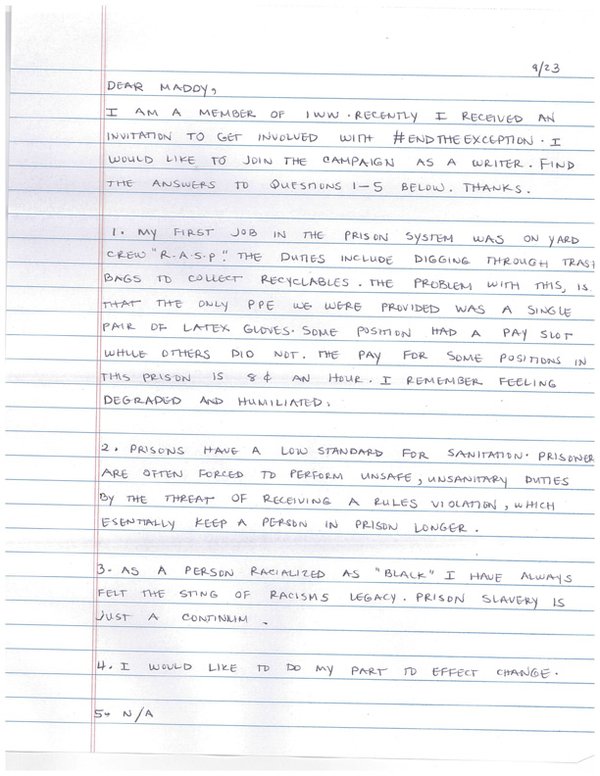 9/23
DEAR MADDY,
I AM A MEMBER OF IWW. RECENTLY I RECEIVED AN
INVITATION TO GET INVOLVED WITH #ENDTHEEXCEPTION. I
WOULD LIKE TO JOIN THE CAMPAIGN AS A WRITER. FIND
THE ANSWERS TO QUESTIONS 1-5 BELOW. THANKS.
1. MY FIRST JOB IN THE PRISON SYSTEM WAS ON YARD
CREW "R.A.S.P." THE DUTIES INCLUDE DIGGING THROUGH TRASH
BAGS TO COLLECT RECYCLABLES. THE PROBLEM WITH THIS, IS
THAT THE ONLY PPE WE WERE PROVIDED WAS A SINGLE
PAIR OF LATEX GLOVES. SOME POSITION HAD A PAY SLOT
WHILE OTHERS DID NOT. THE PAY FOR SOME POSITIONS IN
THIS PRISON IS 8¢ AN HOUR. I REMEMBER FEELING
DEGRADED AND HUMILIATED.
2. PRISONS HAVE A LOW STANDARD FOR SANITATION. PRISONER
ARE OFTEN FORCED TO PERFORM UNSAFE, UNSANITARY DUTIES
BY THE THREAT OF RECEIVING A RULES VIOLATION, WHICH
ESENTIALLY KEEP A PERSON IN PRISON LONGER.
3. AS A PERSON RACIALIZED AS "BLACK" I HAVE ALWAYS
FELT THE STING OF RACISMS LEGACY. PRISON SLAVERY IS
JUST A CONTINUM.
4. I WOULD LIKE TO DO MY PART TO EFFECT CHANGE.
5. N/A